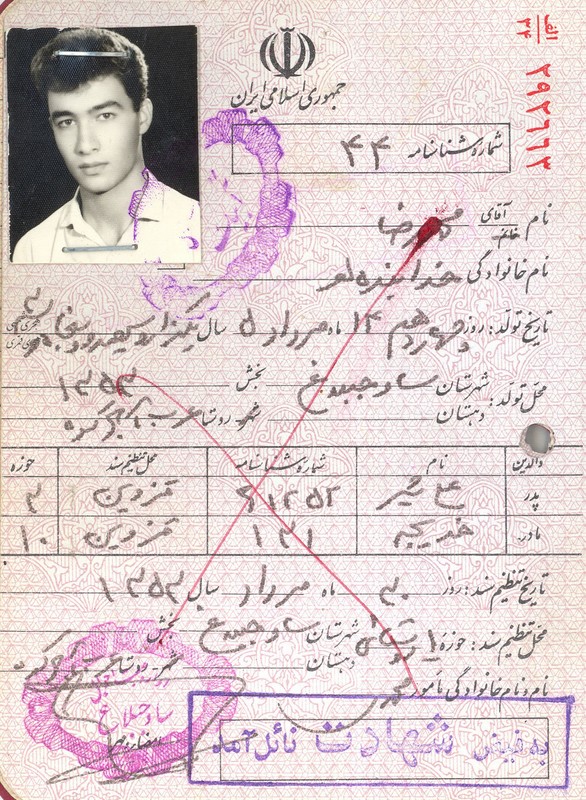 الف
۳۴
۲۹۲۶۶۲
جمهوری اسلامی ایران
شماره شناسنامه ۴۴
نام آقای خانم
نام خانوادگی خدابنده لو
تاریخ تولد: روز چهاردهم ۱۴ ماه مرداد ۵ سال یکهزار و سیصد و پنجاه و
محل تولد: شهرستان ساوجبلاغ بخش ۱۳۵۳
دهستان شهر روستا عرب
والدین نام شماره شناسنامه محل تنظیم سند حوزه
پدر علی شیر ۲۱۲۵۲ قزوین ۳
مادر خدیجه ۱۳۱ قزوین ۱۰
تاریخ تنظیم سند: روز ۳۰ ماه مرداد سال ۱۳۵۳
محل تنظیم سند: حوزه ۱ شهرستان ساوجبلاغ بخش
دهستان شهر روستا
نام و نام خانوادگی مأمور محمد
به فیض شهادت نائل آمد